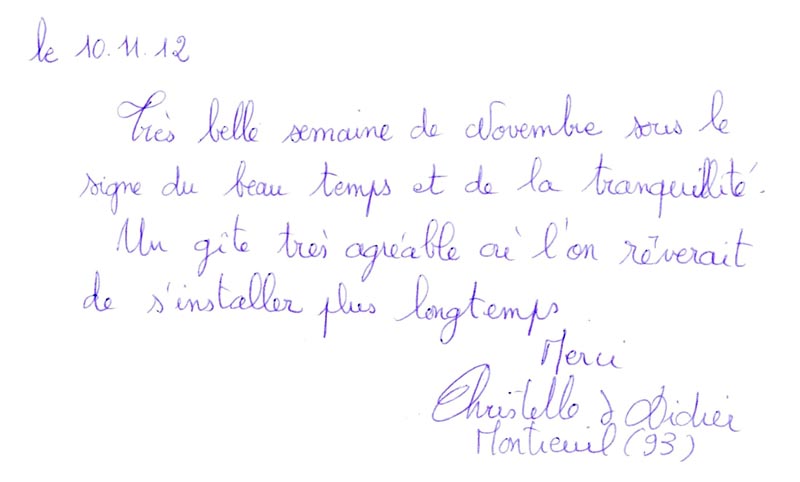 le 10.11.12
Très belle semaine de Novembre sous le
signe du beau temps et de la tranquillité.
Un gîte très agréable où l'on rêverait
de s'installer plus longtemps
Merci
Christelle & Didier
Montreuil (93)